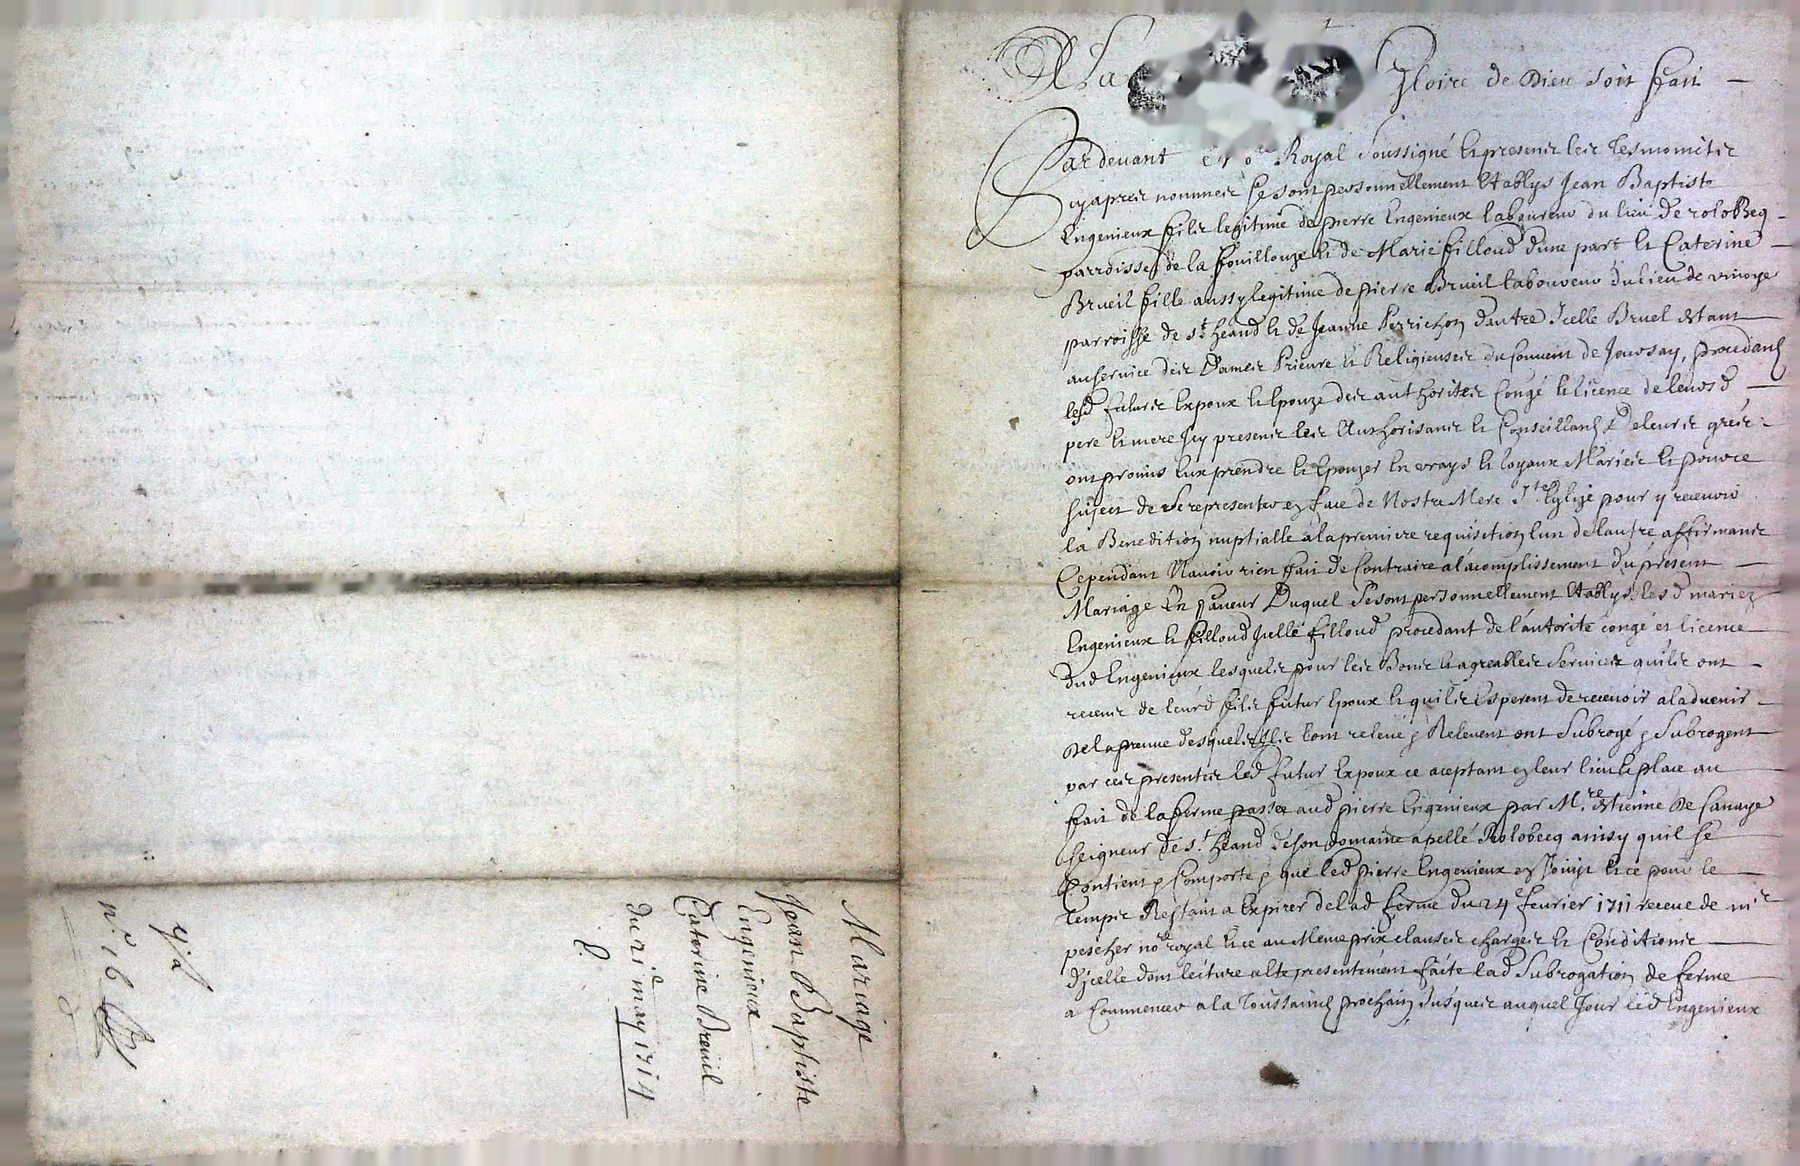 Mariage
Jean Baptiste
Engenieux
Caterine Breuil
du 21e may 1714
n.° 16
A La Gloire de Dieu soit fait
Pardevant Royal soussigné et present les tesmoints
cyapres nommes se sont personnellement Etablys Jean Baptiste
Engenieux fils legitime de pierre Engenieux laboureur du lieu de rolobecq
parroisse de la fouillouze et de Marie filloud d'une part et Caterine
Brueil fille aussy legitime de pierre Brueil laboureur du lieu de
parroisse de st heand et de Jeanne Perrichon d'autre Icelle Bruel Estant
au service des Dames Prieure et Religieuses du Convent de Joursay, procedant
lesd futurs Expoux et Epouze des authorites Congé et licence de leursd
pere et mere Icy presents les Authorisants et Conseillants De leurs grés
ont promis Eux prendre et Epouzer En vrays et loyaux Maries et pource
suject de se representer en face de Nostre Mere Ste Eglize pour y recevoir
la Benedition nuptialle a la premiere requisition l'un de l'autre affirmants
Cependant N'avoir rien fait de Contraire a l'acomplissement du present
Mariage En faveur Duquel se sont personnellement Etablys lesd mariez
Engenieux et filloud Jcelle filloud procedant de l'autorité congé et licence
dud Engenieux lesquels pour les Bons et agreables services qu'ils ont
receus de leurd fils futur Epoux et qu'ils Esperent de recevoir a l'advenir
De la preuve desquels Ils l'ont relevé & Relevent ont Subrogé & Subrogent
par ces presentes led futur Expoux ce aceptant en leur lieu et place au
fait de la ferme passée aud pierre Engenieux par Mre Estienne De
seigneur de st heand de son domaine apellé Rolobecq ainsy qu'il se
Contient & Comporte & que led pierre Engenieux en Jouiyt et ce pour le
temps Restant a Expirer de lad ferme du 24e fevrier 1711 receue de me
pescher nore royal et ce au Meme prix clauses charges et Conditions
d'jcelle dont lecture a Ete presentement faite lad Subrogation de ferme
a Commencer a la Toussaint prochain Jusques auquel Jour led Engenieux